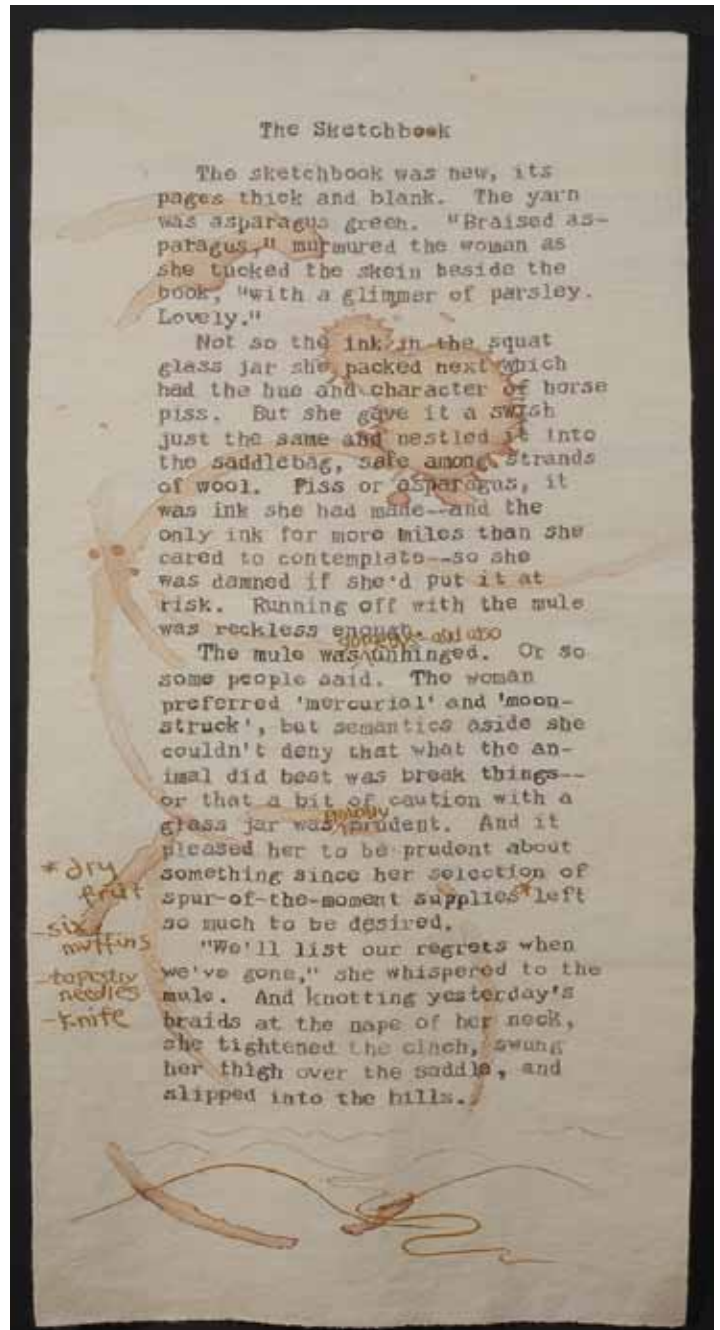 The Sketchbook
The sketchbook was new, its
pages thick and blank. The yarn
was asparagus green. "Braised as-
paragus," murmured the woman as
she tucked the skein beside the
book, "with a glimmer of parsley.
Lovely."
Not so the ink in the squat
glass jar she packed next which
had the hue and character of horse
piss. But she gave it a swish
just the same and nestled it into
the saddlebag, safe among strands
of wool. Piss or asparagus, it
was ink she had made--and the
only ink for more miles than she
cared to contemplate--so she
was damned if she'd put it at
risk. Running off with the mule
was reckless enough.
The mule was unhinged. Or so
some people said. The woman
preferred 'mercurial' and 'moon-
struck', but semantics aside she
couldn't deny that what the an-
imal did best was break things--
or that a bit of caution with a
glass jar was prudent. And it
pleased her to be prudent about
something since her selection of
spur-of-the-moment supplies* left
so much to be desired.
"We'll list our regrets when
we've gone," she whispered to the
mule. And knotting yesterday's
braids at the nape of her neck,
she tightened the cinch, swung
her thigh over the saddle, and
slipped into the hills.
* dry
fruit
-six
muffins
-tapestry
needles
-knife